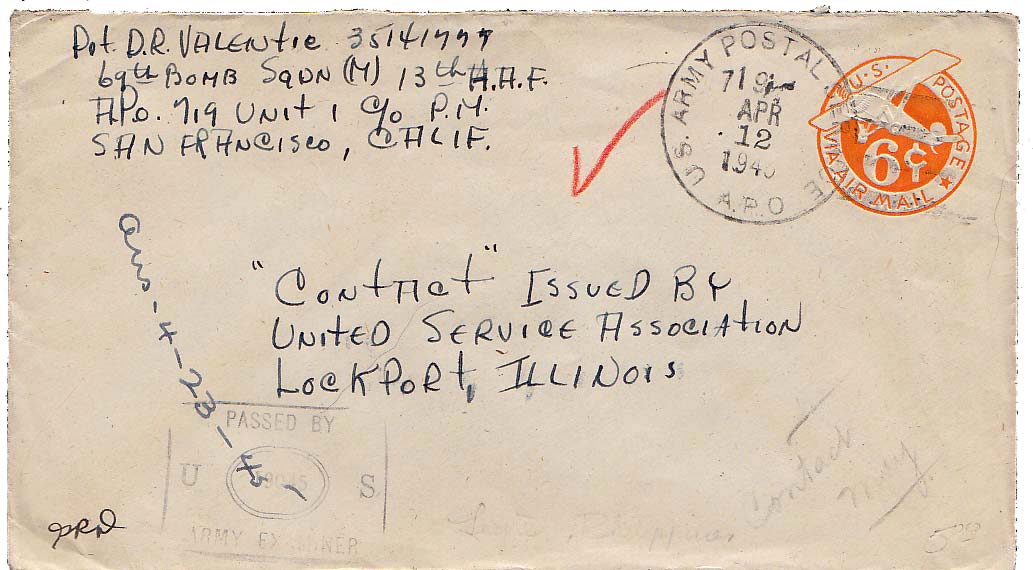 Pvt. D.R. VALENTIE 35141777
69th BOMB SQDN (M) 13th A.A.F.
A.P.O. 719 UNIT 1 c/o P.M.
SAN FRANCISCO, CALIF.
U.S. ARMY POSTAL SERVICE
APR
12
A.P.O
U.S. POSTAGE
6¢
VIA AIR MAIL
"CONTACT" ISSUED BY
UNITED SERVICE ASSOCIATION
LOCKPORT, ILLINOIS
ans-4-23-45
PASSED BY
U S
ARMY EXAMINER
Contact
Philippines